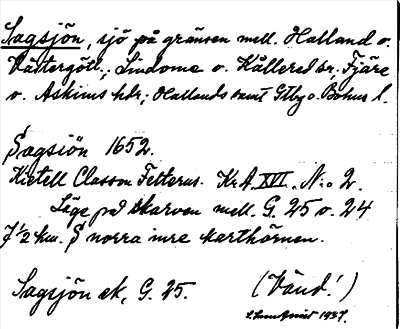 Sagsjön, sjö på gränsen mell. Halland o.
Västergötl., Lindome o. Kållered sr, Fjäre
o. Askims hdr; Hallands samt Gtbg o. Bohus l.
Sagsiön 1652.
Kietell Classon Felterus. Kr.A. XVI. N:o 2.
Läge på skarven mell. G. 25 o. 24
7½ km. S norra inre karthörnen.
Sagsjön ek, G. 25.
(Vänd!)
1937.